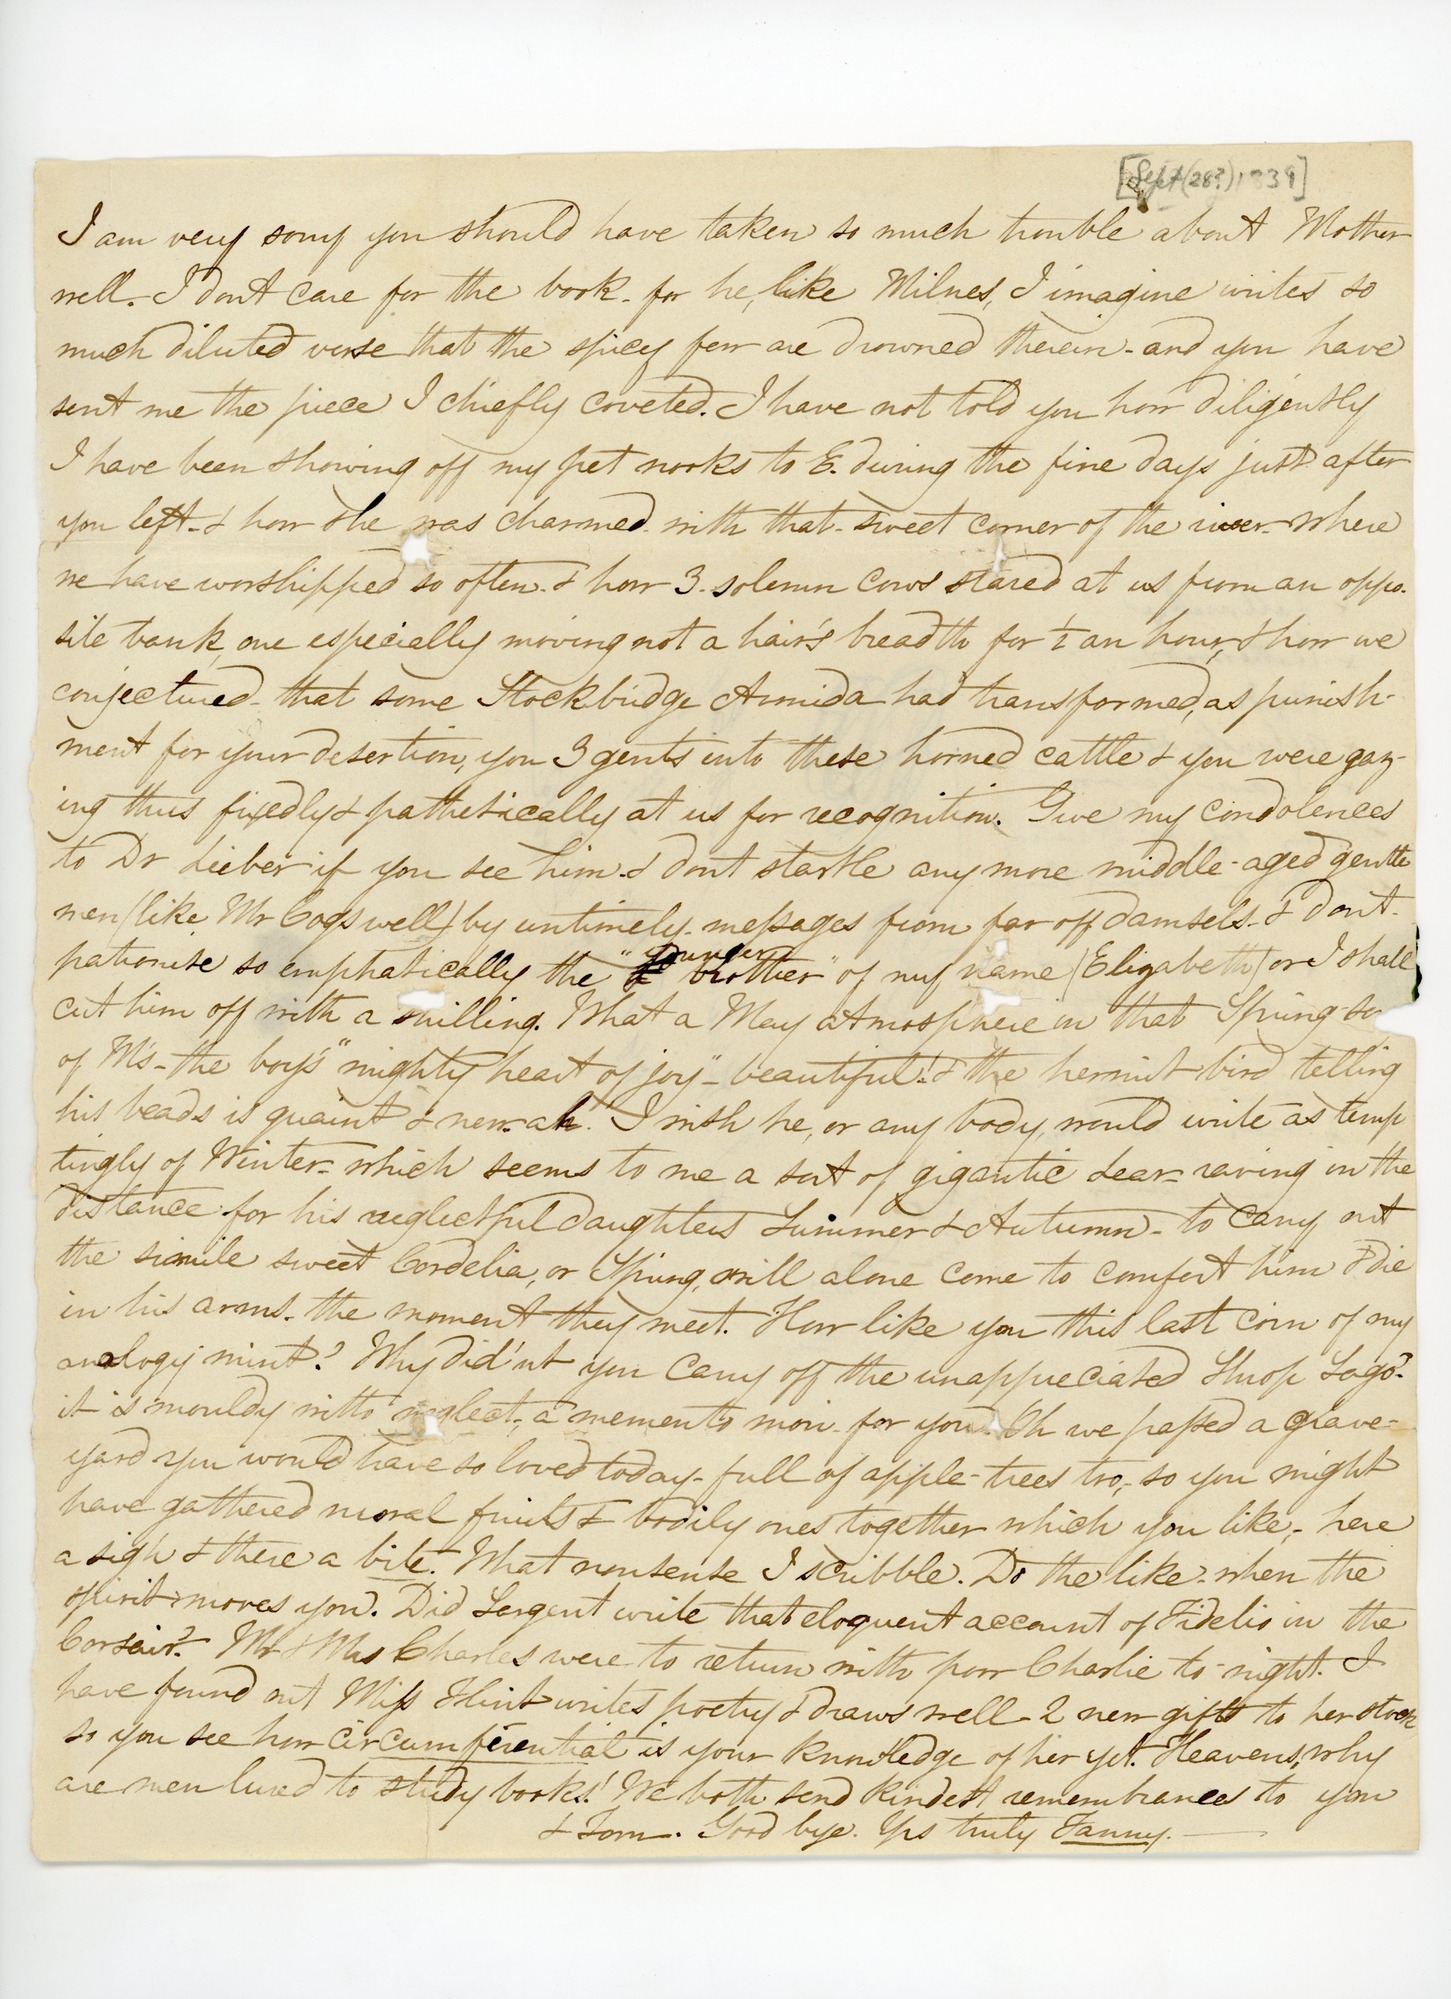 [Sept (28?) 1839]
I am very sorry you should have taken so much trouble about Mother
well. I don't care for the book - for he, like Milnes, I imagine writes so
much diluted verse that the spicy few are drowned therein - and you have
sent me the piece I chiefly coveted. I have not told you how diligently
I have been showing off my pet nooks to E. during the fine days just after
you left - & how she was charmed with that sweet corner of the river - where
we have worshipped so often - & how 3 solemn cows stared at us from an oppo-
site bank, one especially moving not a hair's breadth for ½ an hour, & how we
conjectured - that some Stockbridge Armida had transformed, as punish-
ment for your desertion, you 3 gents into these horned cattle & you were gaz-
ing thus fixedly & pathetically at us for recognition. Give my condolences
to Dr Lieber if you see him - & dont startle any more middle-aged gentle
men (like Mr Cogswell) by untimely messages from far off damsels - & dont -
patronise so emphatically the "younger brother" of my name (Elizabeth) or I shall
cut him off with a shilling. What a May atmosphere in that Spring so
of M's - the boy's "mighty heart of joy" - beautiful! & the hermit-bird telling
his beads is quaint & new - ah! I wish he, or any body, would write as temp
tingly of Winter - which seems to me a sort of gigantic Lear - raving in the
distance for his neglectful daughters Summer & Autumn - to carry out
the simile sweet Cordelia, or Spring, will alone come to comfort him & die
in his arms - the moment they meet. How like you this last coin of my
analogy mint? Why did'nt you carry off the unappreciated Shop Sago?
it is mouldy with neglect, - a memento mori for you. Oh we passed a grave-
yard you would have so loved today - full of apple-trees too, - so you might
have gathered moral fruits & bodily ones together which you like, - here
a sigh & there a bite. What nonsense I scribble. Do the like - when the
spirit moves you. Did Sargent write that eloquent account of Fidelio in the
Corsair? - Mr & Mrs Charles were to return with poor Charlie to-night. I
have found out Miss Flint writes poetry & draws well - 2 new gifts to her stock
so you see how circumferential is your knowledge of her yet. Heavens, why
are men lured to study books! We both send kindest remembrances to you
& Tom. Good bye. Yrs truly Fanny.